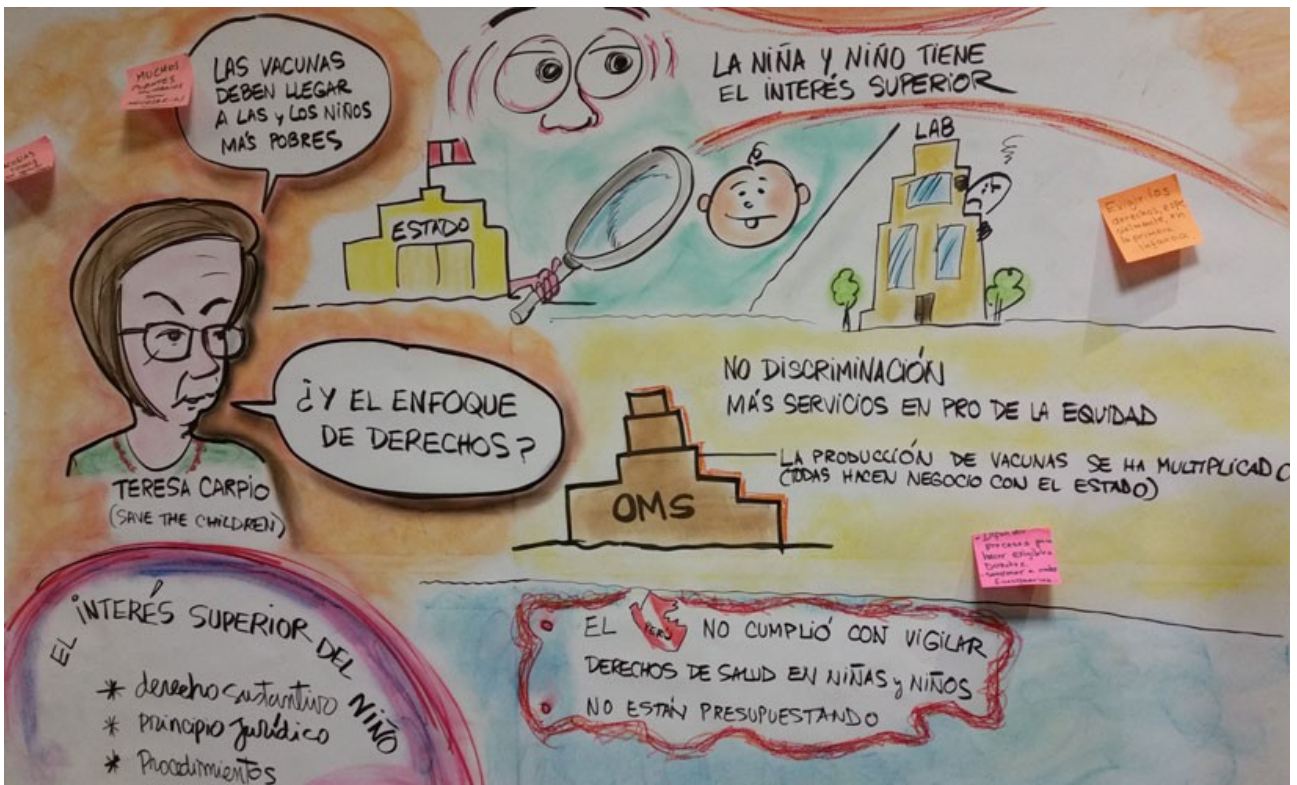 MUCHOS
LAS VACUNAS
DEBEN LLEGAR
A LAS y LOS NIÑOS
MÁS POBRES
LA NIÑA Y NIÑO TIENE
EL INTERÉS SUPERIOR
ESTADO
LAB
Exigir los
derechos, espe
cialmente, en
la primera
infancia.
¿Y EL ENFOQUE
DE DERECHOS?
TERESA CARPIO
(SAVE THE CHILDREN)
NO DISCRIMINACIÓN
MÁS SERVICIOS EN PRO DE LA EQUIDAD
LA PRODUCCIÓN DE VACUNAS SE HA MULTIPLICADO
(TODAS HACEN NEGOCIO CON EL ESTADO)
OMS
procesos para
hacer exigibles
EL INTERÉS SUPERIOR DEL NIÑO
* derecho sustantivo
* principio jurídico
* Procedimientos
EL PERÚ NO CUMPLIÓ CON VIGILAR
DERECHOS DE SALUD EN NIÑAS y NIÑOS
NO ESTÁN PRESUPUESTANDO